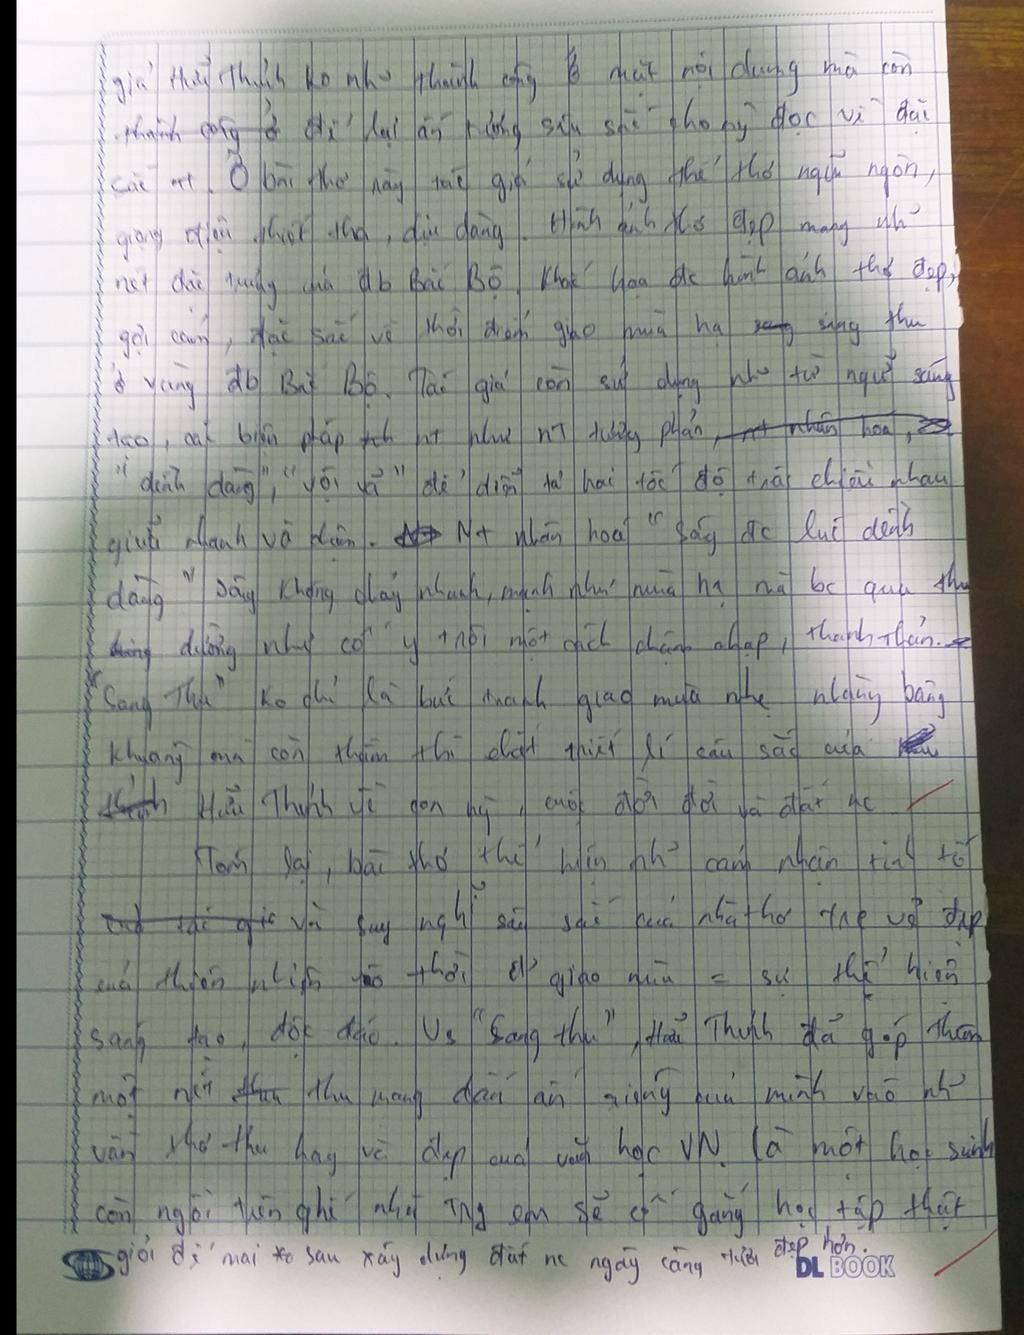 giả Hữu Thỉnh ko nhữ thành công ở mặt nội dung mà còn
thành công ở để lại ấn tượng sâu sắc cho ng đọc về đặc
sắc nt. Ở bài thơ này tác giả sử dụng thể thơ ngũ ngôn,
giọng điệu thiết tha, dịu dàng. Hình ảnh thơ đẹp mang nh~
nét đặc trưng của đb Bắc Bộ. Khắc họa đc hình ảnh thơ đẹp,
gợi cảm, đặc sắc về thời điểm giao mùa hạ sang sang thu
ở vùng đb Bắc Bộ. Tác giả còn sử dụng nh~ từ ngữ sáng
tạo, các biện pháp nt như nt tương phản, nt nhân hoá,
"dềnh dàng", "vội vã" để diễn tả hai tốc độ trái chiều nhau
giữa nhanh và chậm. Nt nhân hoá "Sông đc lúc dềnh
dàng" Sông không chảy nhanh, mạnh như mùa hạ mà bc qua thu
dường như cố ý trôi một cách chậm chạp, thanh thản.
"Sang Thu" ko chỉ là bức tranh giao mùa nhẹ nhàng bâng
khuâng mà còn thấm thía chất triết lí sâu sắc của
Hữu Thỉnh về con ng, cuộc đời và đất nc
Tóm lại, bài thơ thể hiện nh~ cảm nhận tinh tế
và suy nghĩ sâu sắc của nhà thơ trc vẻ đẹp
của thiên nhiên thời đ' giao mùa = sự thể hiện
sáng tạo, độc đáo. Vs "Sang thu", Hữu Thỉnh đã góp thêm
một nét thu mang dấu ấn riêng của mình vào nh~
vần thơ thu hay và đẹp của văn học VN. Là một học sinh
còn ngồi trên ghế nhà trg em sẽ cố gắng học tập thật
giỏi để mai sau xây dựng đất nc ngày càng tươi đẹp hơn.
DL BOOK